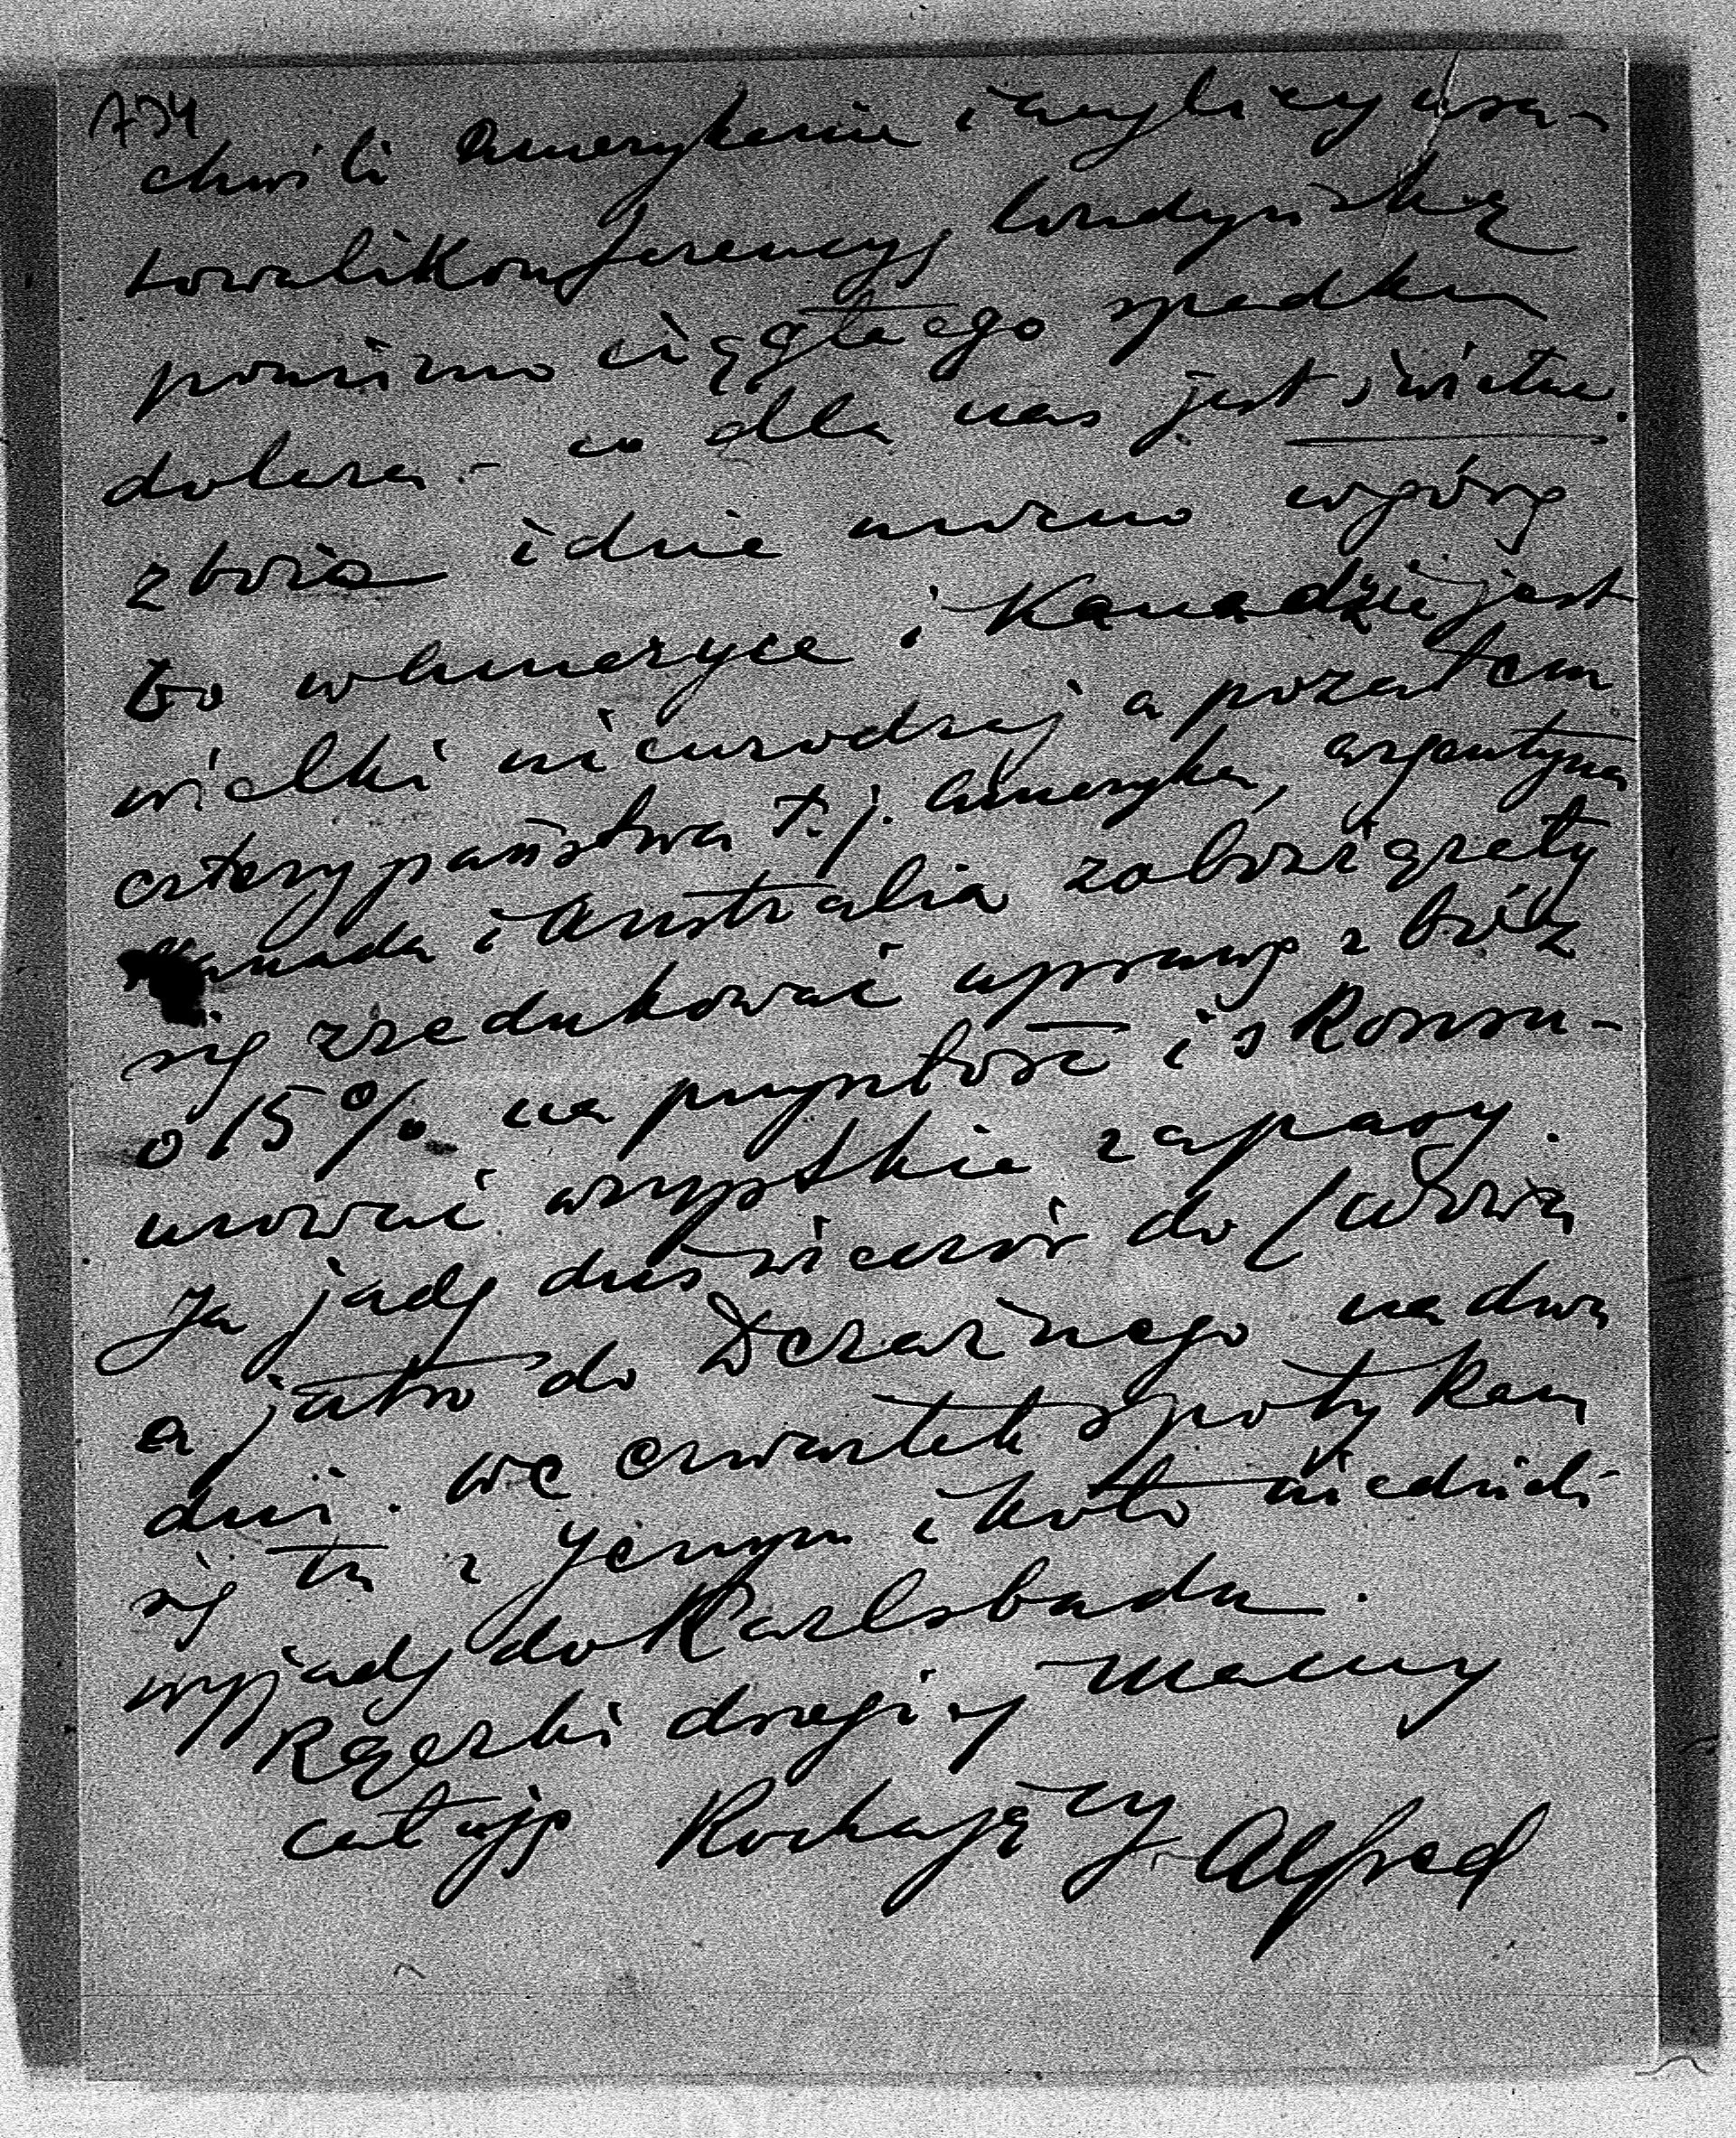 734
chwili Amerykanie i anglicy ura-
towali Konferencyę londyńską
pomimo ciągłego spadku
dolara - co dla nas jest świetne.
zboże idzie mocno wgórę
bo w Ameryce i Kanadzie jest
wielki nieurodzaj a pozatem
cztery państwa t.j. Ameryka, argentyna
Kanada i Australia zobowiązały
się zredukować uprawę zbóż
o 15% na przyszłość i skonsu-
mować wszystkie zapasy.
Ja jadę dziś wieczór do Lwowa
a jutro do Derażnego na dwa
dni. We czwartek spotykam
się tu z Jerzym i koło niedzieli
wyjadę do Karlsbadu.
Rączki drogiej Mamy
całuję Kochający Alfred